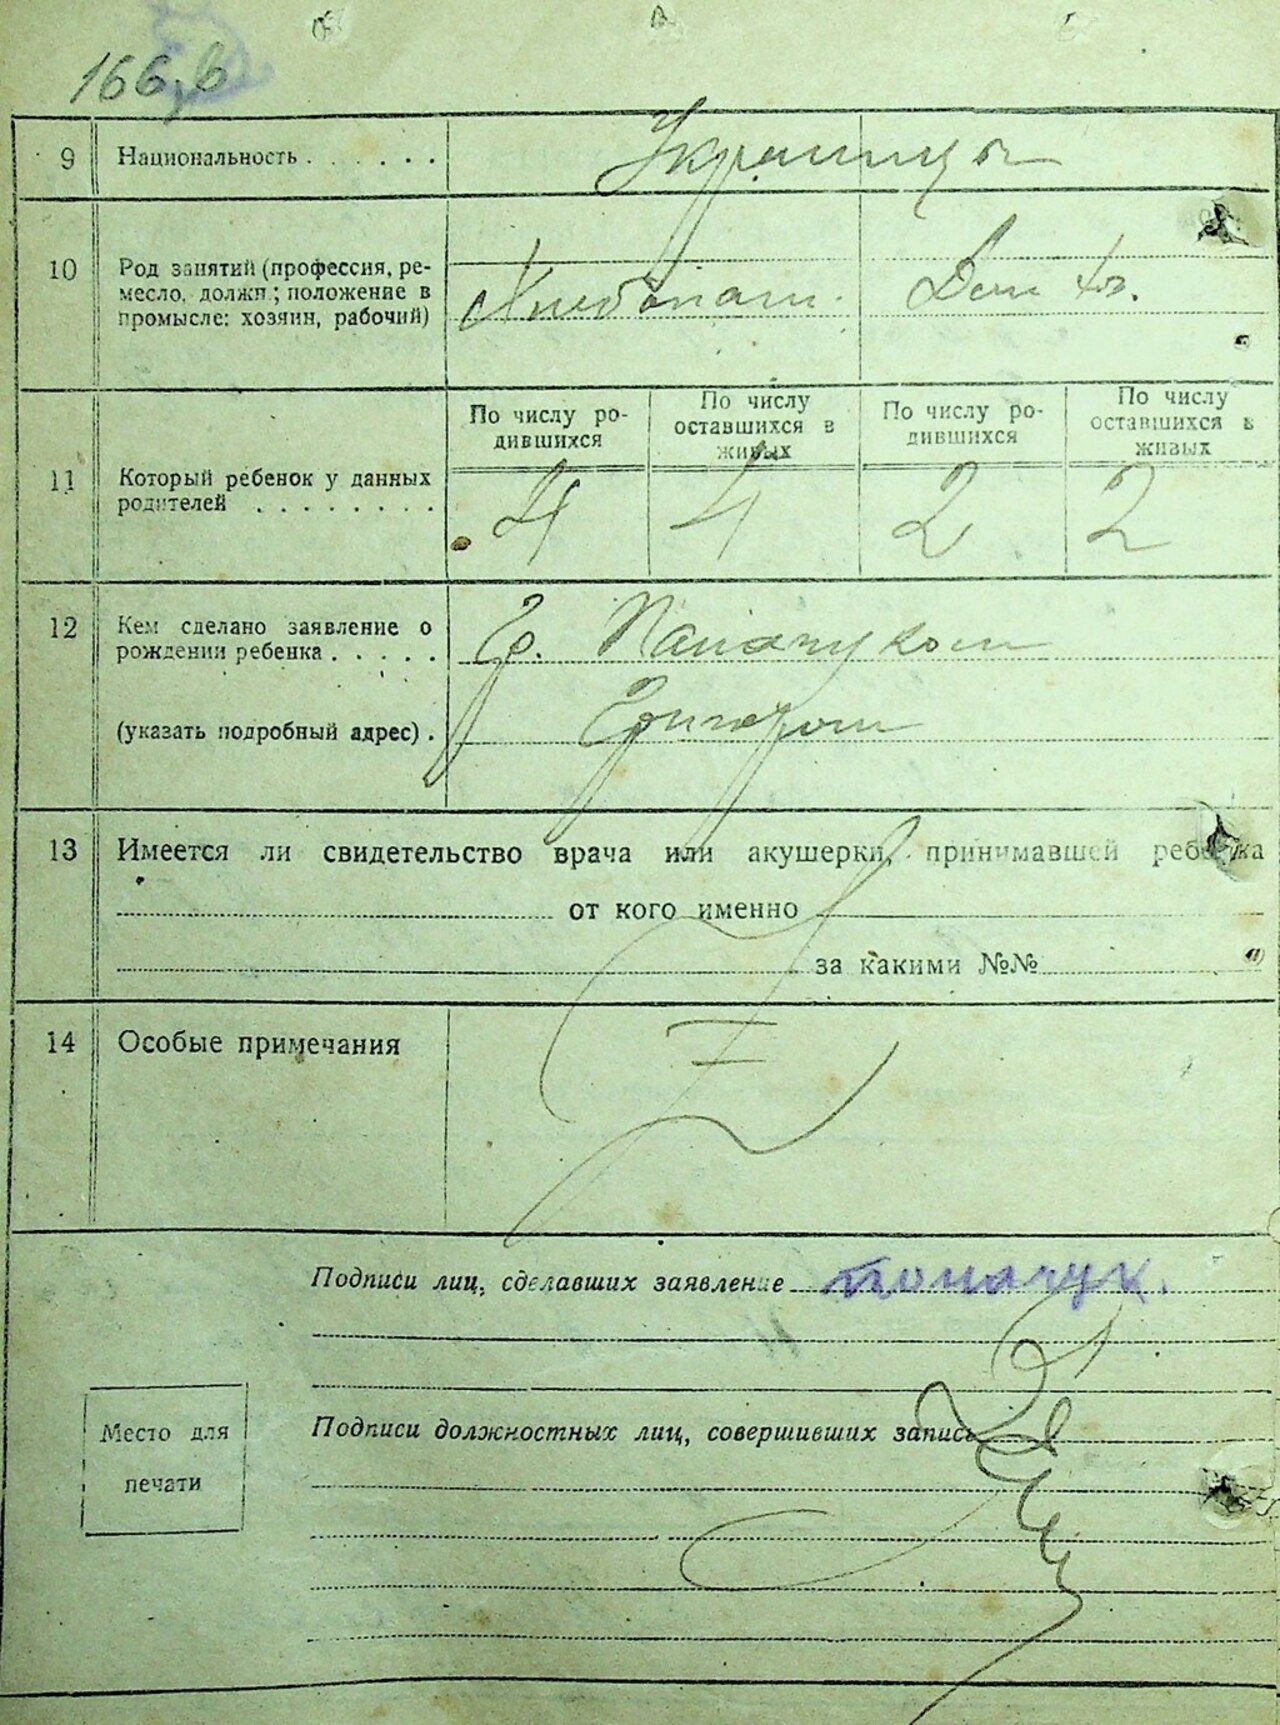 166,6
9 Национальность . . . . . . Украинцы
10 Род занятий (профессия, ре-
месло, должн; положение в
промысле: хозяин, рабочий)
Хлебопаш. Дом хоз.
По числу ро-
дившихся
По числу
оставшихся в
живых
По числу ро-
дившихся
По числу
оставшихся в
живых
11 Который ребенок у данных
родителей . . . . . . . .
4 4 2 2
12 Кем сделано заявление о
рождении ребенка . . . . .
Гр. Паначуком
(указать подробный адрес) . Григорием
13 Имеется ли свидетельство врача или акушерки, принимавшей ребенка
от кого именно
за какими №№
14 Особые примечания
Подписи лиц, сделавших заявление
Подписи должностных лиц, совершивших запись
Место для
печати